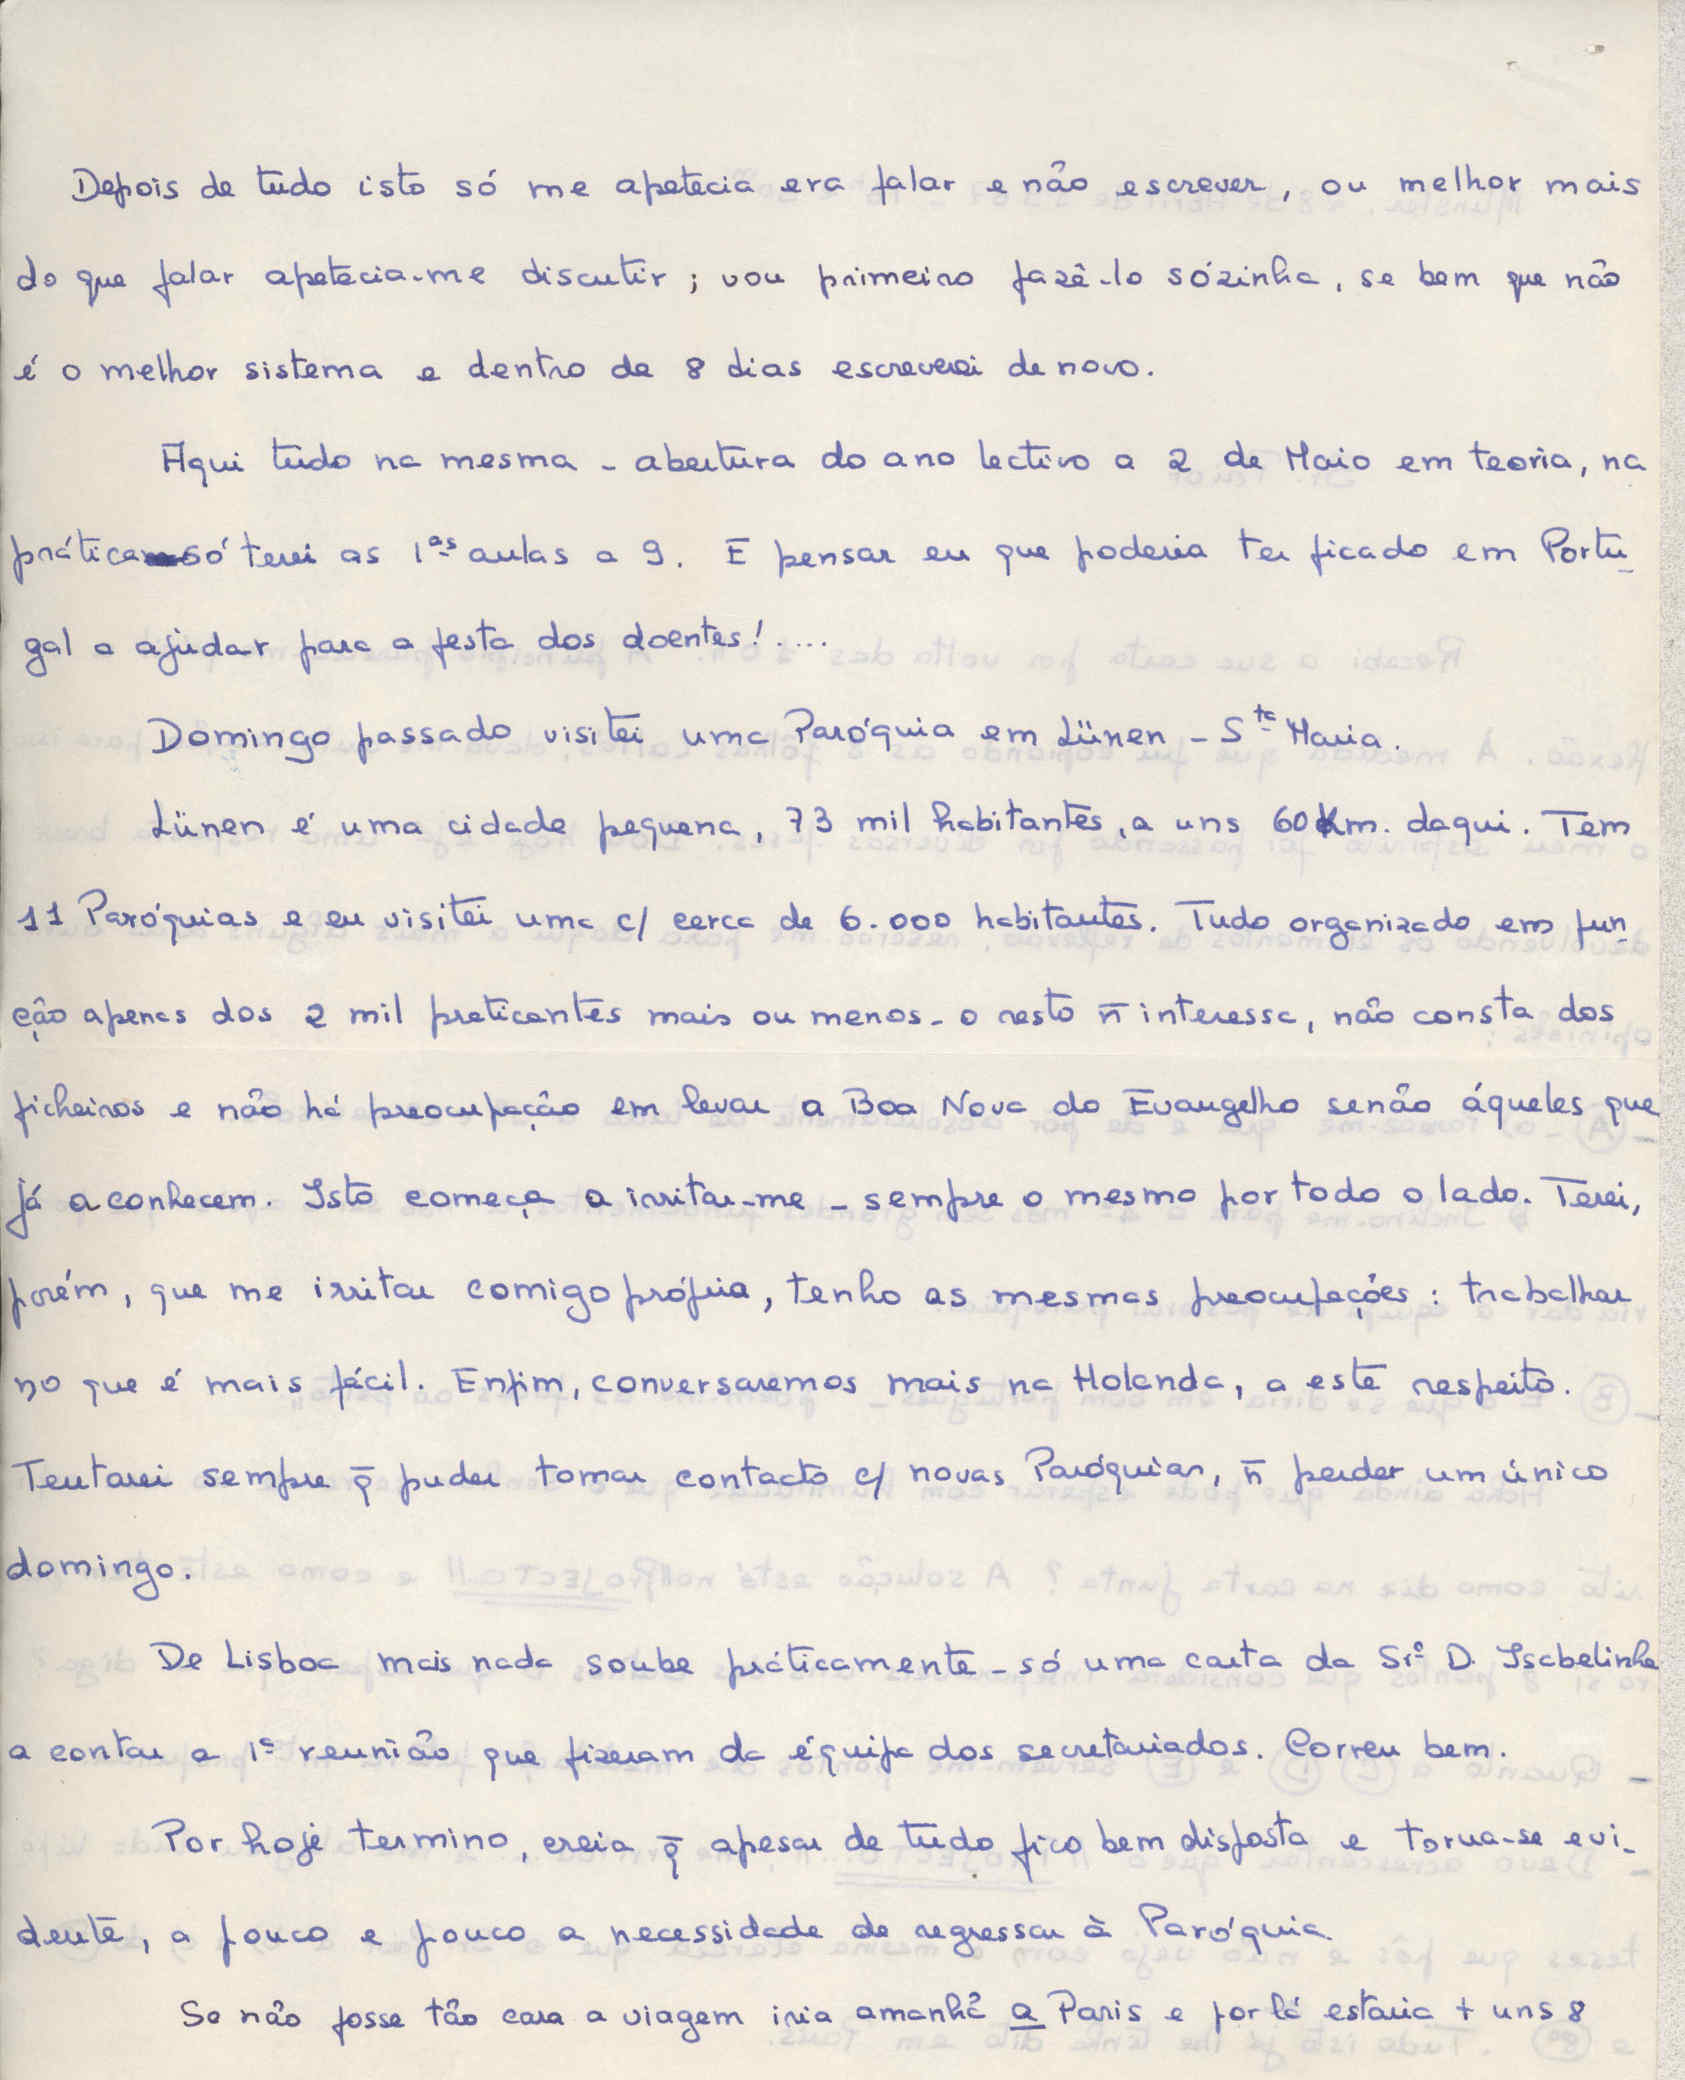 Depois de tudo isto só me apetecia era falar e não escrever, ou melhor mais
do que falar apetecia-me discutir; vou primeiro fazê-lo sózinha, se bem que não
é o melhor sistema e dentro de 8 dias escreverei de novo.
Aqui tudo na mesma - abertura do ano lectivo a 2 de Maio em teoria, na
prática só terei as 1ªs aulas a 9. E pensar eu que poderia ter ficado em Portu-
gal a ajudar para a festa dos doentes!....
Domingo passado visitei uma Paróquia em Lünen - Stª Maria.
Lünen é uma cidade pequena, 73 mil habitantes, a uns 60 Km. daqui. Tem
11 Paróquias e eu visitei uma c/ cerca de 6.000 habitantes. Tudo organizado em fun-
ção apenas dos 2 mil praticantes mais ou menos - o resto n̄ interessa, não consta dos
ficheiros e não há preocupação em levar a Boa Nova do Evangelho senão áqueles que
já a conhecem. Isto começa a irritar-me - sempre o mesmo por todo o lado. Terei,
porém, que me irritar comigo própria, tenho as mesmas preocupações: trabalhar
no que é mais fácil. Enfim, conversaremos mais na Holanda, a este respeito.
Tentarei sempre q̄ puder tomar contacto c/ novas Paróquias, n̄ perder um único
domingo.
De Lisboa mais nada soube práticamente - só uma carta da Srª D. Isabelinha
a contar a 1ª reunião que fizeram da équipa dos secretariados. Correu bem.
Por hoje termino, creia q̄ apesar de tudo fico bem disposta e torna-se evi-
dente, a pouco e pouco a necessidade de regressar à Paróquia.
Se não fosse tão cara a viagem iria amanhã a Paris e por lá estaria + uns 8